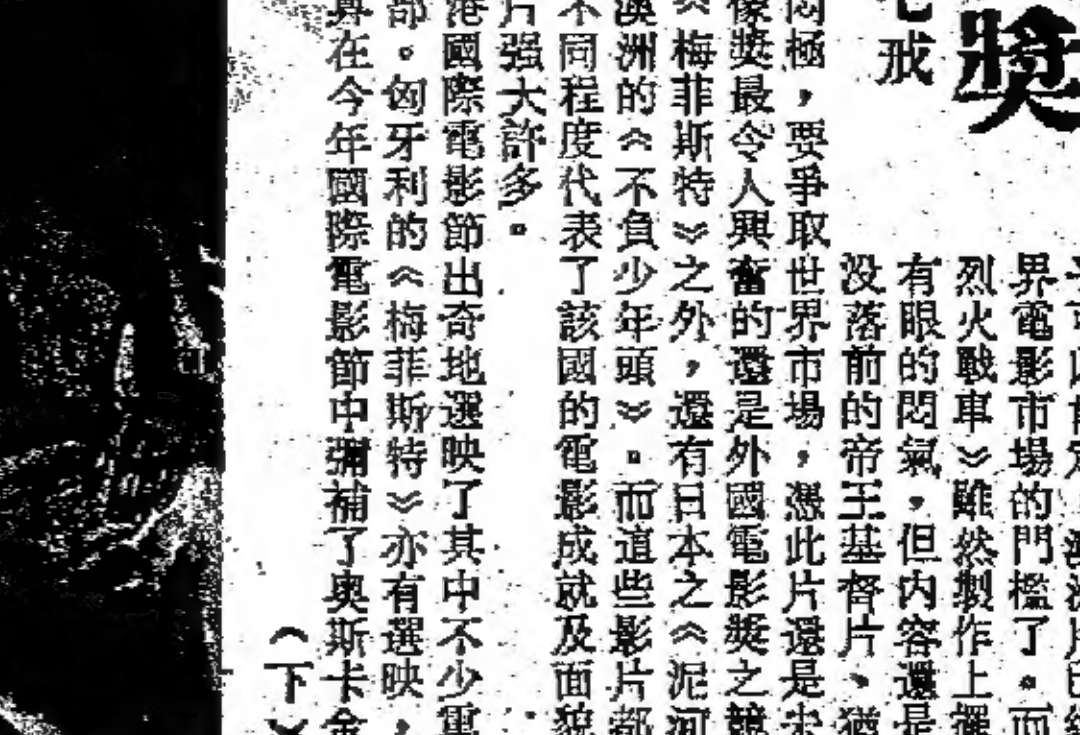 獎
戒
界電影市場的門檻了。而
烈火戰車》雖然製作上擺
有眼的悶氣,但內容還是
没落前的帝王基督片、猶
悶極,要爭取世界市場,憑此片還是未
像獎最令人興奮的還是外國電影獎之競
《梅菲斯特》之外,還有日本之《泥河
澳洲的《不負少年頭》。而這些影片都
不同程度代表了該國的電影成就及面貌
片强大許多。
港國際電影節出奇地選映了其中不少電
部。匈牙利的《梅菲斯特》亦有選映,
算在今年國際電影節中彌補了奧斯卡金
(下)